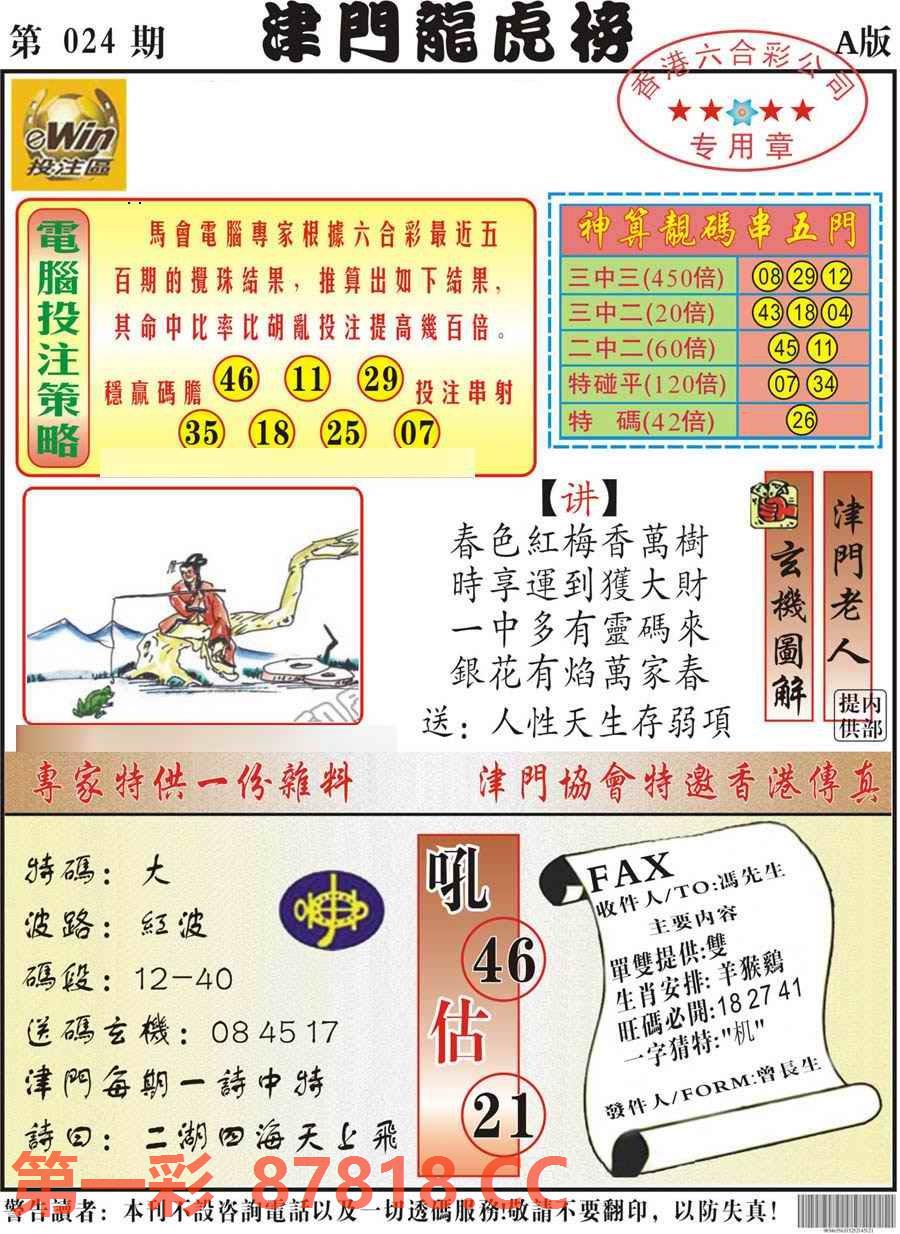 第 024 期
津門龍虎榜
A版
香港六合彩公司
专用章
eWin
投注區
電腦投注策略
馬會電腦專家根據六合彩最近五
百期的攪珠結果，推算出如下結果，
其命中比率比胡亂投注提高幾百倍。
穩贏碼膽 46 11 29 投注串射
35 18 25 07
神算靚碼串五門
三中三(450倍) 08 29 12
三中二(20倍) 43 18 04
二中二(60倍) 45 11
特碰平(120倍) 07 34
特 碼(42倍) 26
【讲】
春色紅梅香萬樹
時享運到獲大財
一中多有靈碼來
銀花有焰萬家春
送：人性天生存弱項
玄機圖解
津門老人
内部提供
專家特供一份雜料
津門協會特邀香港傳真
特碼：大
波路：紅波
碼段：12-40
送碼玄機：08 45 17
津門每期一詩中特
詩曰：二湖四海天上飛
吼
46
估
21
FAX
收件人/TO:馮先生
主要内容
單雙提供:雙
生肖安排:羊猴鷄
旺碼必開:18 27 41
一字猜特:"机"
發件人/FORM:曾長生
第一彩 87818.CC
警告讀者：本刊不設咨詢電話以及一切透碼服務!敬請不要翻印，以防失真!